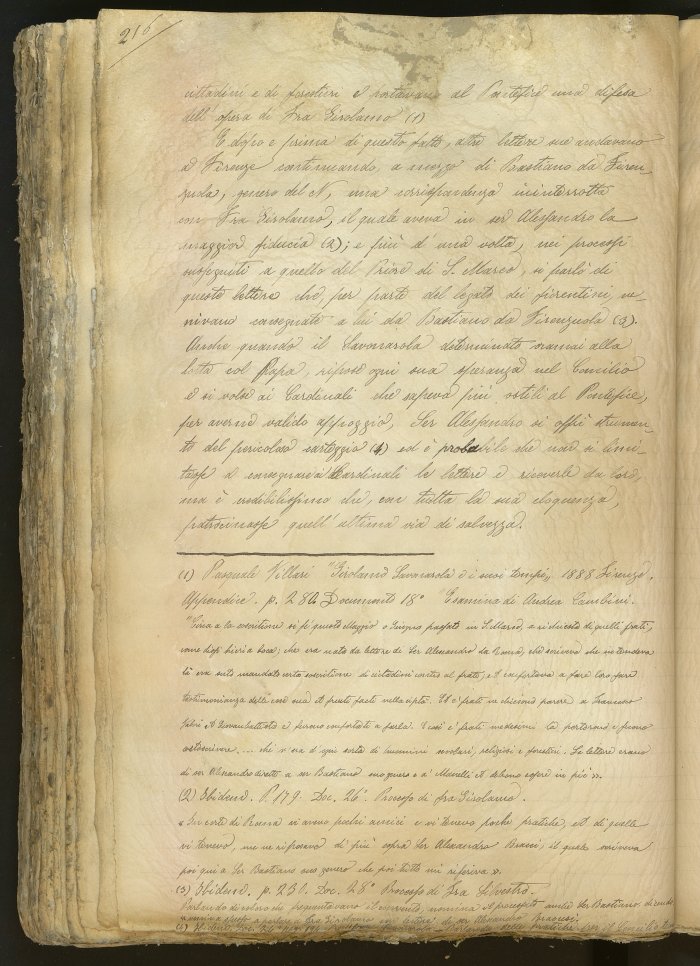 216
cittadini e di forestieri e portavano al Pontefice una difesa
dell'opera di Fra Girolamo (1)
E dopo e prima di questo fatto, altre lettere sue andavano
a Firenze continuando, a mezzo di Bastiano da Firen-
zuola, genero del N, una corrispondenza ininterrotta
con Fra Girolamo, il quale aveva in ser Alessandro la
maggior fiducia (2); e più d'una volta, nei processi
susseguiti a quello del Priore di S. Marco, si parlò di
queste lettere che per parte del legato dei fiorentini, ve-
nivano consegnate a lui da Bastiano da Firenzuola (3).
Anche quando il Savonarola determinato oramai alla
lotta col Papa, ripose ogni sua speranza nel Concilio
e si volse ai Cardinali che sapeva più ostili al Pontefice,
per averne valido appoggio, Ser Alessandro si offrì strumen-
to del pericoloso carteggio (4) ed è probabile che non si limi-
tasse a consegnare ai Cardinali le lettere e riceverle da loro,
ma è credibilissimo che, con tutta la sua eloquenza,
patrocinasse quell'ultima via di salvezza.
(1) Pasquale Villari "Girolamo Savonarola e i suoi tempi, 1888 Firenze.
Appendice. p. 280. Documento 18° Esamina di Andrea Cambini.
"Circa a la soscritione si fè questo Maggio o Giugno passato in S. Marco, a richiesta di quelli frati,
come dissi hieri a boca; che era nata da lettere di Ser Alexandro da Roma, che scriveva che intendeva
là era suto mandato certa soscritione di cittadini contra al frate, e confortava a fare loro fare
testimonianza delle cose sua et frutti facti nella cipta. Et e' frati ne chiesono parere a Francesco
Valori et Giovanbattista e furono confortati a farla. E così e' frati medesimi la portorono e feciono
sotoscrivere .... che v'era d'ogni sorta di huomini scolari, religiosi e forestieri. Le lettere erano
di ser Alexandro diretti a ser Bastiano suo genero e a' Mazelli et debono essere in piò».
(2) Ibidem. P. 179. Doc. 26° Processo di fra Girolamo.
«In corte di Roma vi avevo pochi amici e vi tenevo poche pratiche, et di quelle
vi tenevo, me ne riposavo di più sopra Ser Alexandro Bracci, il quale scriveva
poi qui a Ser Bastiano suo genero che poi tutto mi riferiva».
(3) Ibidem. p. 230. Doc. 28° Processo di Fra Silvestro.
Parlando di coloro che frequentavano il convento, nomina il processato anche Ser Bastiano dicendo